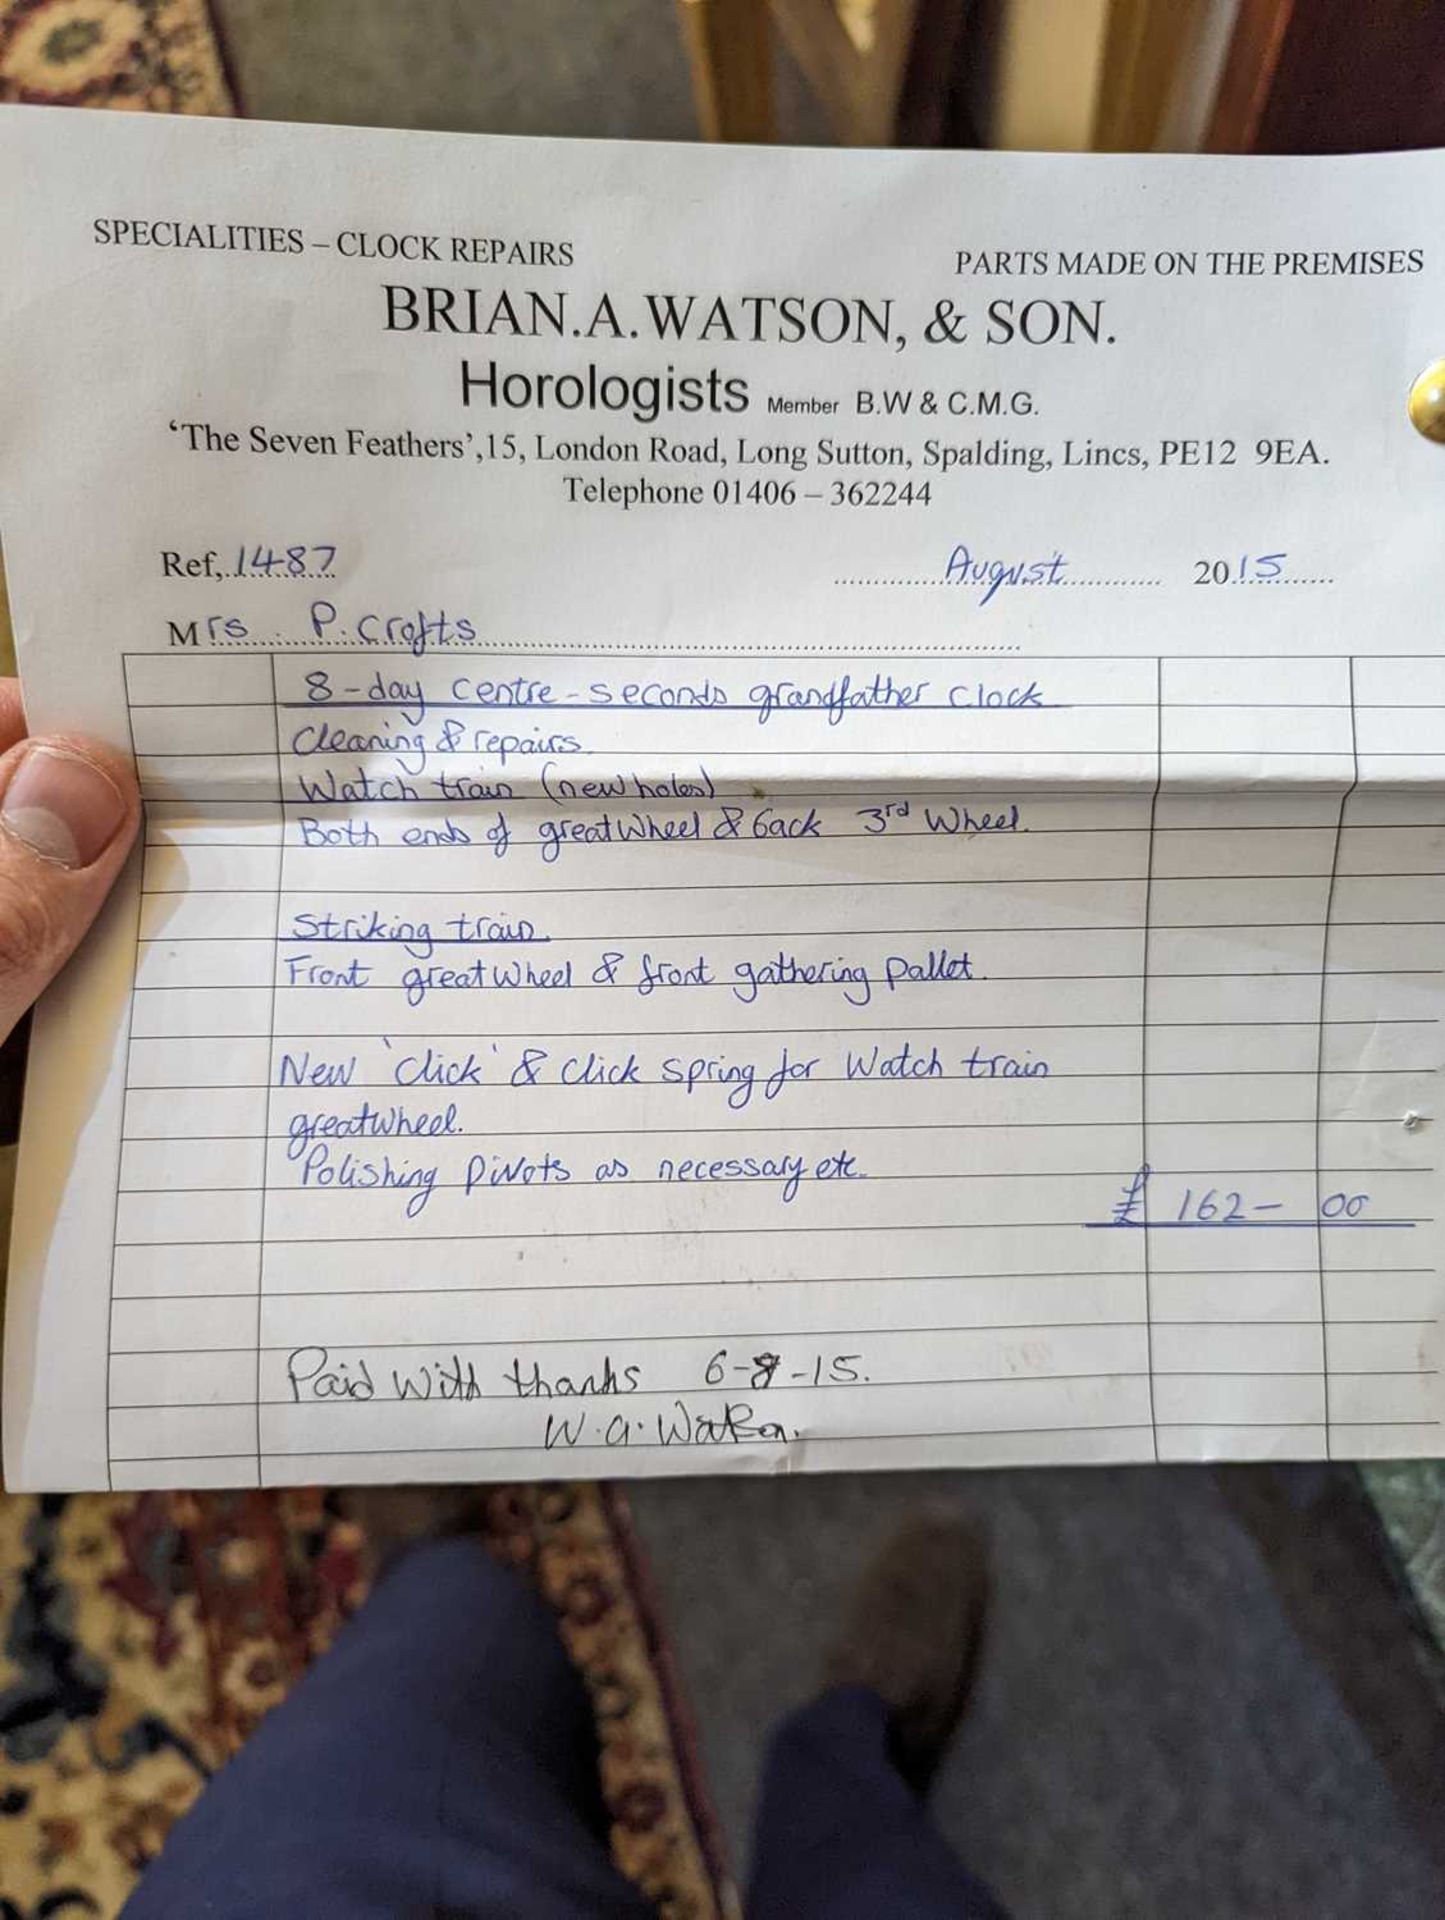 SPECIALITIES – CLOCK REPAIRS
PARTS MADE ON THE PREMISES
BRIAN.A.WATSON, & SON.
Horologists Member B.W & C.M.G.
‘The Seven Feathers’,15, London Road, Long Sutton, Spalding, Lincs, PE12 9EA.
Telephone 01406 – 362244
Ref, 1487
August 2015
Mrs P. Crofts
8-day centre-seconds grandfather clock
Cleaning & repairs.
Watch train (new holes)
Both ends of greatwheel & back 3rd Wheel.
Striking train.
Front greatwheel & front gathering pallet.
New 'click' & click spring for Watch train
greatwheel.
Polishing pivots as necessary etc.
£ 162- 00
Paid with thanks 6-8-15.
W.A.